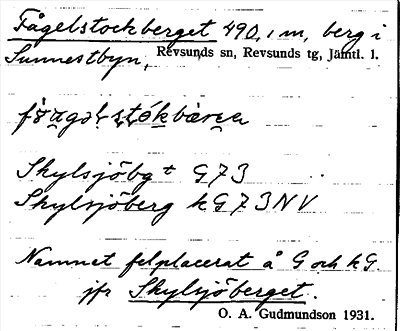 Fågelstockberget 490,1 m, berg i
Sunnestbyn, Revsunds sn, Revsunds tg, Jämtl. l.
Skylsjöbgt G73
Skylsjöberg kG73NV
Namnet felplacerat å G och kG
jfr Skylsjöberget.
O. A. Gudmundson 1931.